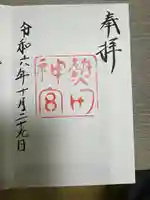 奉拝
熱田神宮
令和六年十月二十九日